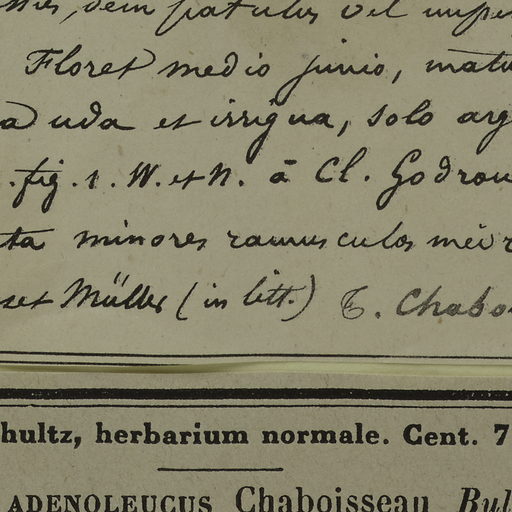 dein patulis vel
Floret medio junio, matu
a uda et irrigua, solo arg
. fig. 1. W. et N. ā Cl. Godron
ta minores ramusculos
et Müller (in litt.) T. Chabo
hultz, herbarium normale. Cent. 7
ADENOLEUCUS Chaboisseau Bul